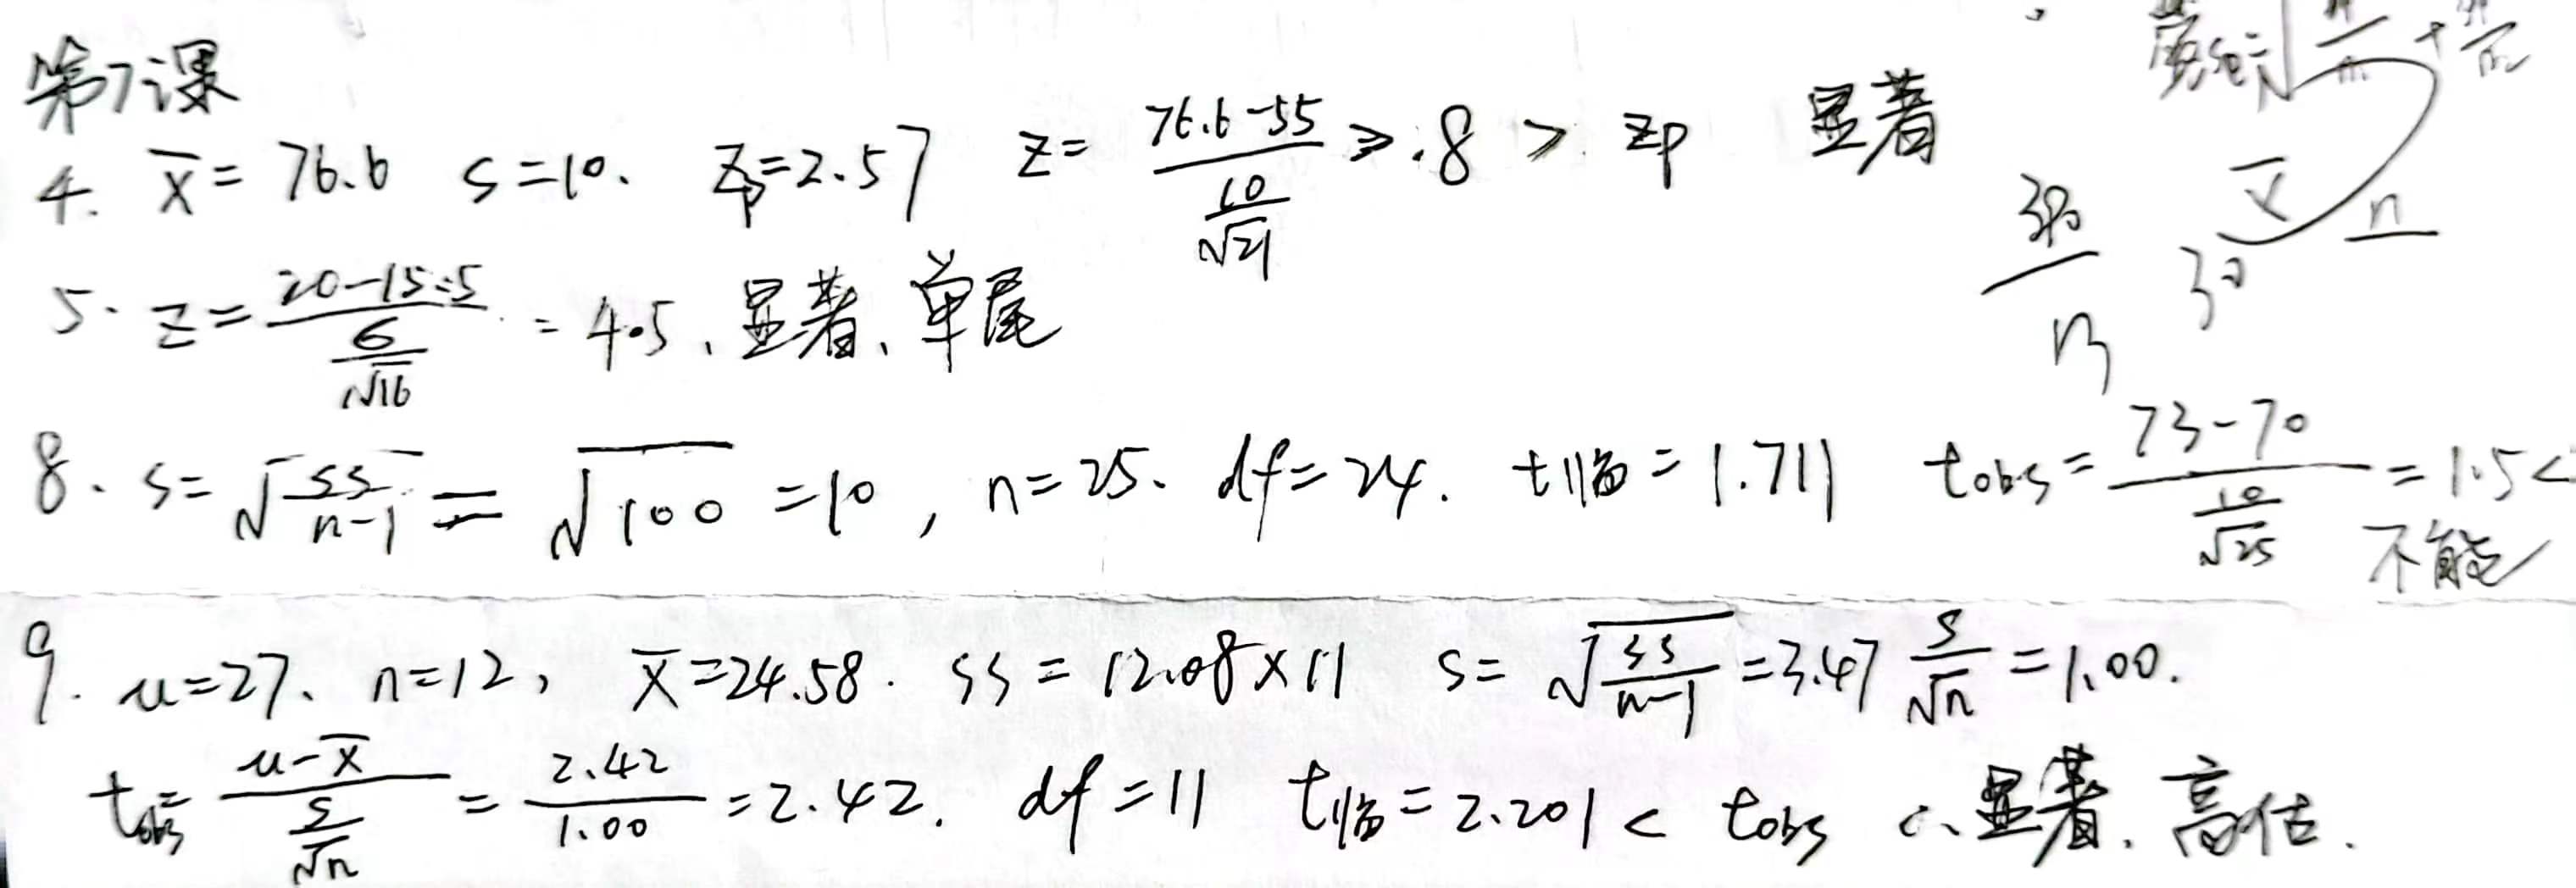 第7课
4. x̄ = 76.6 s=10. Zp=2.57 z= (76.6-55)/(10/√21) ≥.8 > zp 显著
5. z= (20-15.5)/(6/√16) = 4.5、显著、单尾
8. s= √(ss/(n-1)) = √100 =10, n=25. df=24. t临=1.711 tobs= (73-70)/(10/√25) =1.5<
不能
9. u=27. n=12, x̄=24.58. ss=12.08×11 s= √(ss/(n-1)) =3.47 s/√n =1.00.
tobs= (u-x̄)/(s/√n) = 2.42/1.00 =2.42. df=11 t临=2.201< tobs ∴显著. 高估.